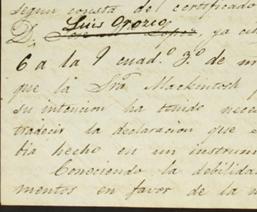 segun consta del certificado
Luis Orozco
D. ya ci
6 a la 9 cuad.º 3.º de
que la Sra. Mackintosh
su intencion ha tenido nece
tradecir la declaracion que
bia hecho en un instrum
Conociendo la debilida
mentos en favor de la